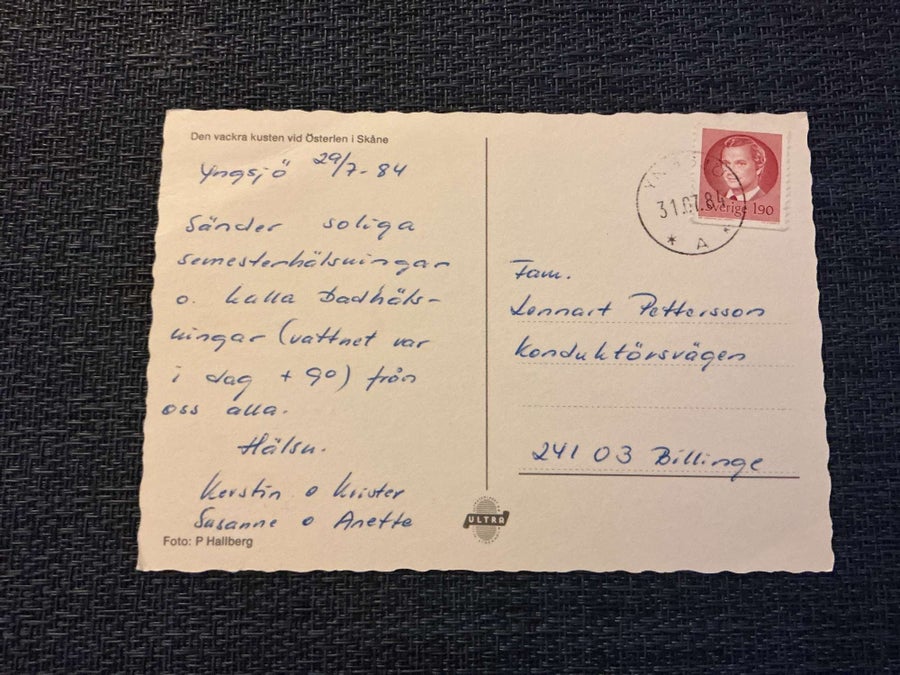 Den vackra kusten vid Österlen i Skåne
Yngsjö 29/7-84
Sänder soliga
semesterhälsningar
o. kalla badhäls-
ningar (vattnet var
i dag + 9°) från
oss alla.
Hälsn.
Kerstin o Krister
Susanne o Anette
Foto: P Hallberg
ULTRA
YNGSJÖ
31.07.84
* A *
Sverige 190
Fam.
Lennart Pettersson
Konduktörsvägen
241 03 Billinge